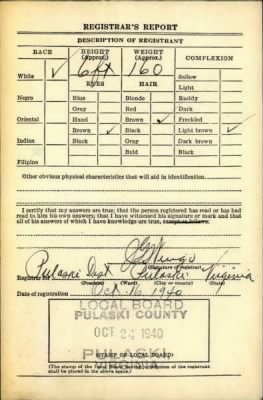 REGISTRAR'S REPORT
DESCRIPTION OF REGISTRANT
RACE HEIGHT (Approx.) WEIGHT (Approx.) COMPLEXION
White ✓ 6 ft 160 Sallow
EYES HAIR Light
Negro Blue Blonde Ruddy
Gray Red Dark
Oriental Hazel Brown ✓ Freckled
Brown ✓ Black Light brown ✓
Indian Black Gray Dark brown
Bald Black
Filipino
Other obvious physical characteristics that will aid in identification
I certify that my answers are true; that the person registered has read or has had
read to him his own answers; that I have witnessed his signature or mark and that
all of his answers of which I have knowledge are true, except as follows:
(Signature of registrar)
Registrar for Pulaski Dist Pulaski Virginia
(Precinct) (Ward) (City or county) (State)
Date of registration Oct 16 1940
LOCAL BOARD
PULASKI COUNTY
OCT 24 1940
PULASKI
VIRGINIA
(STAMP OF LOCAL BOARD)
(The stamp of the Local Board having jurisdiction of the registrant
shall be placed in the above space.)